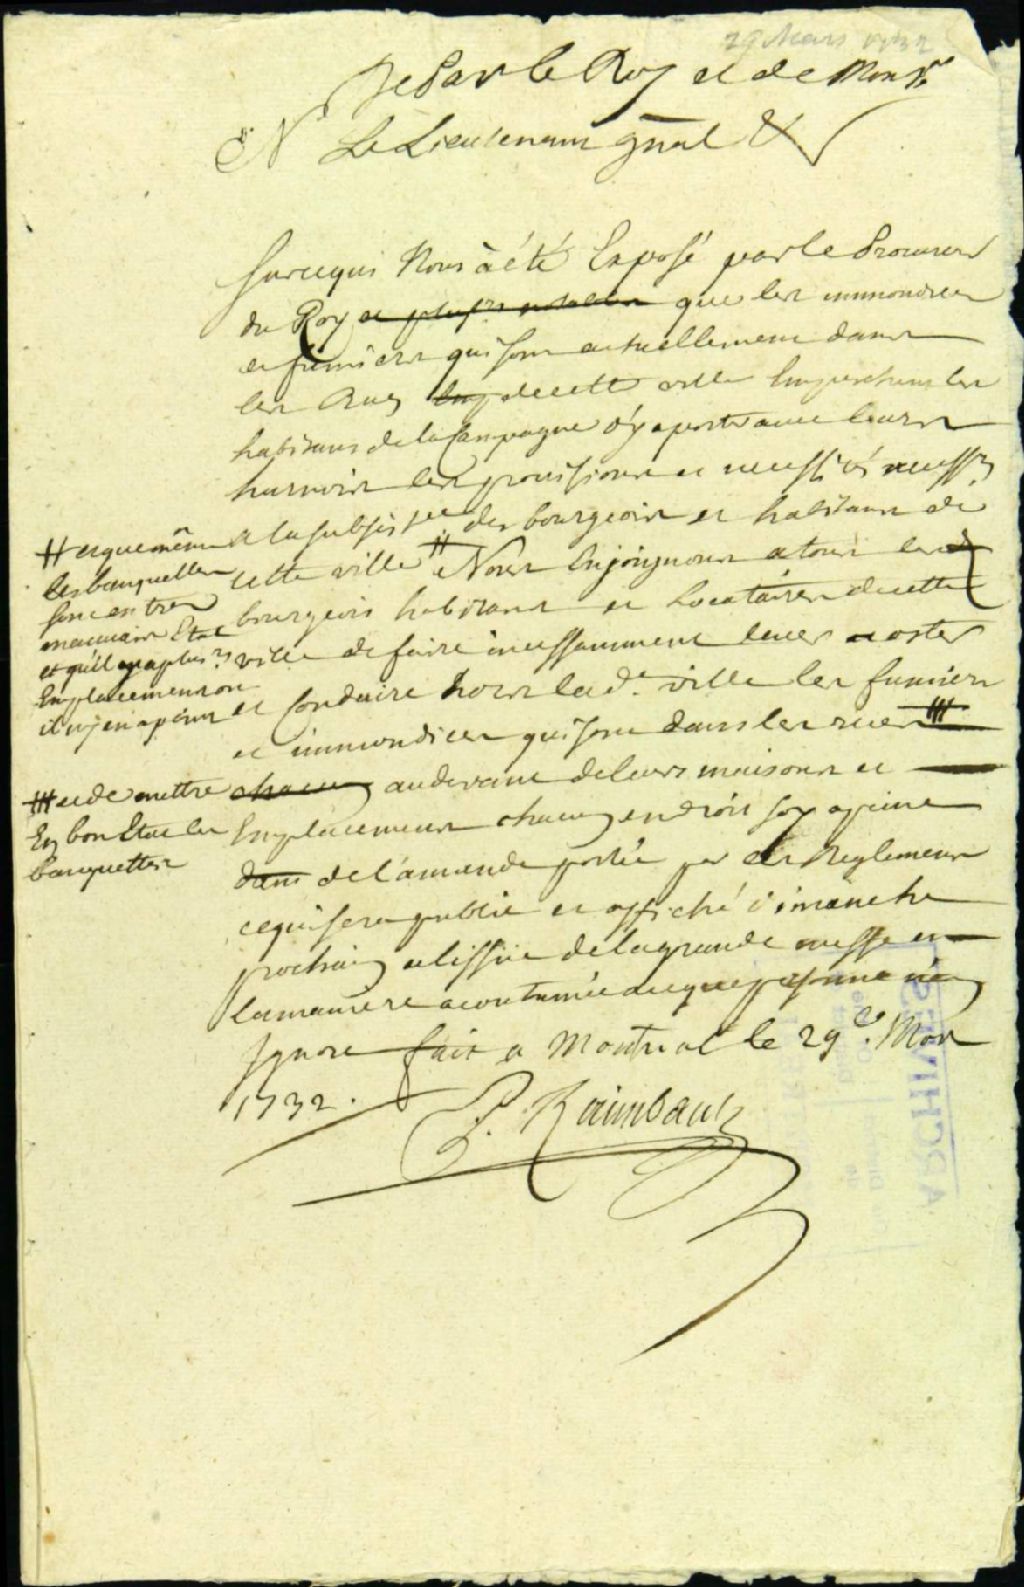 29 Mars 1732
De Par le Roy et de Monsr
Le Lieutenant gnal &
Surcequi Nous à été Exposé par le Procureur
du Roy et plusrs notables que les immondices
et fumiers qui sont actuellement dans
les Rues de cette ville Empeschent les
habitans de la Campagne d'y aporter avec leurs
harnois les provisions et necessités necessrs
a la subsistce des bourgeois et habitans de
cette ville # Nous Enjoignons a tous les
bourgeois habitans et Locataires de cette
ville de faire incessamment lever et oster
et Conduire hors lad.e ville les fumiers
et immondices qui sont dans les rues ##
chacun au devant de leurs maisons et
Emplacemens chacun endroit soy apeine
dans de l'amende portée par les Reglemens
cequisera publié et affiché dimanche
prochain a lissüe de la grande messe en
la maniere acoutumée aceque personne n'en
Ignore fait a Montreal le 29e. Mars
1732.
P. Raimbault
# et que même
les banquettes
sont en tres
mauvais Etat
et qu'il y a plusrs
Emplacemens ou
il n'y en a point
## et de mettre
En bon Etat les
banquettes
ARCHIVES